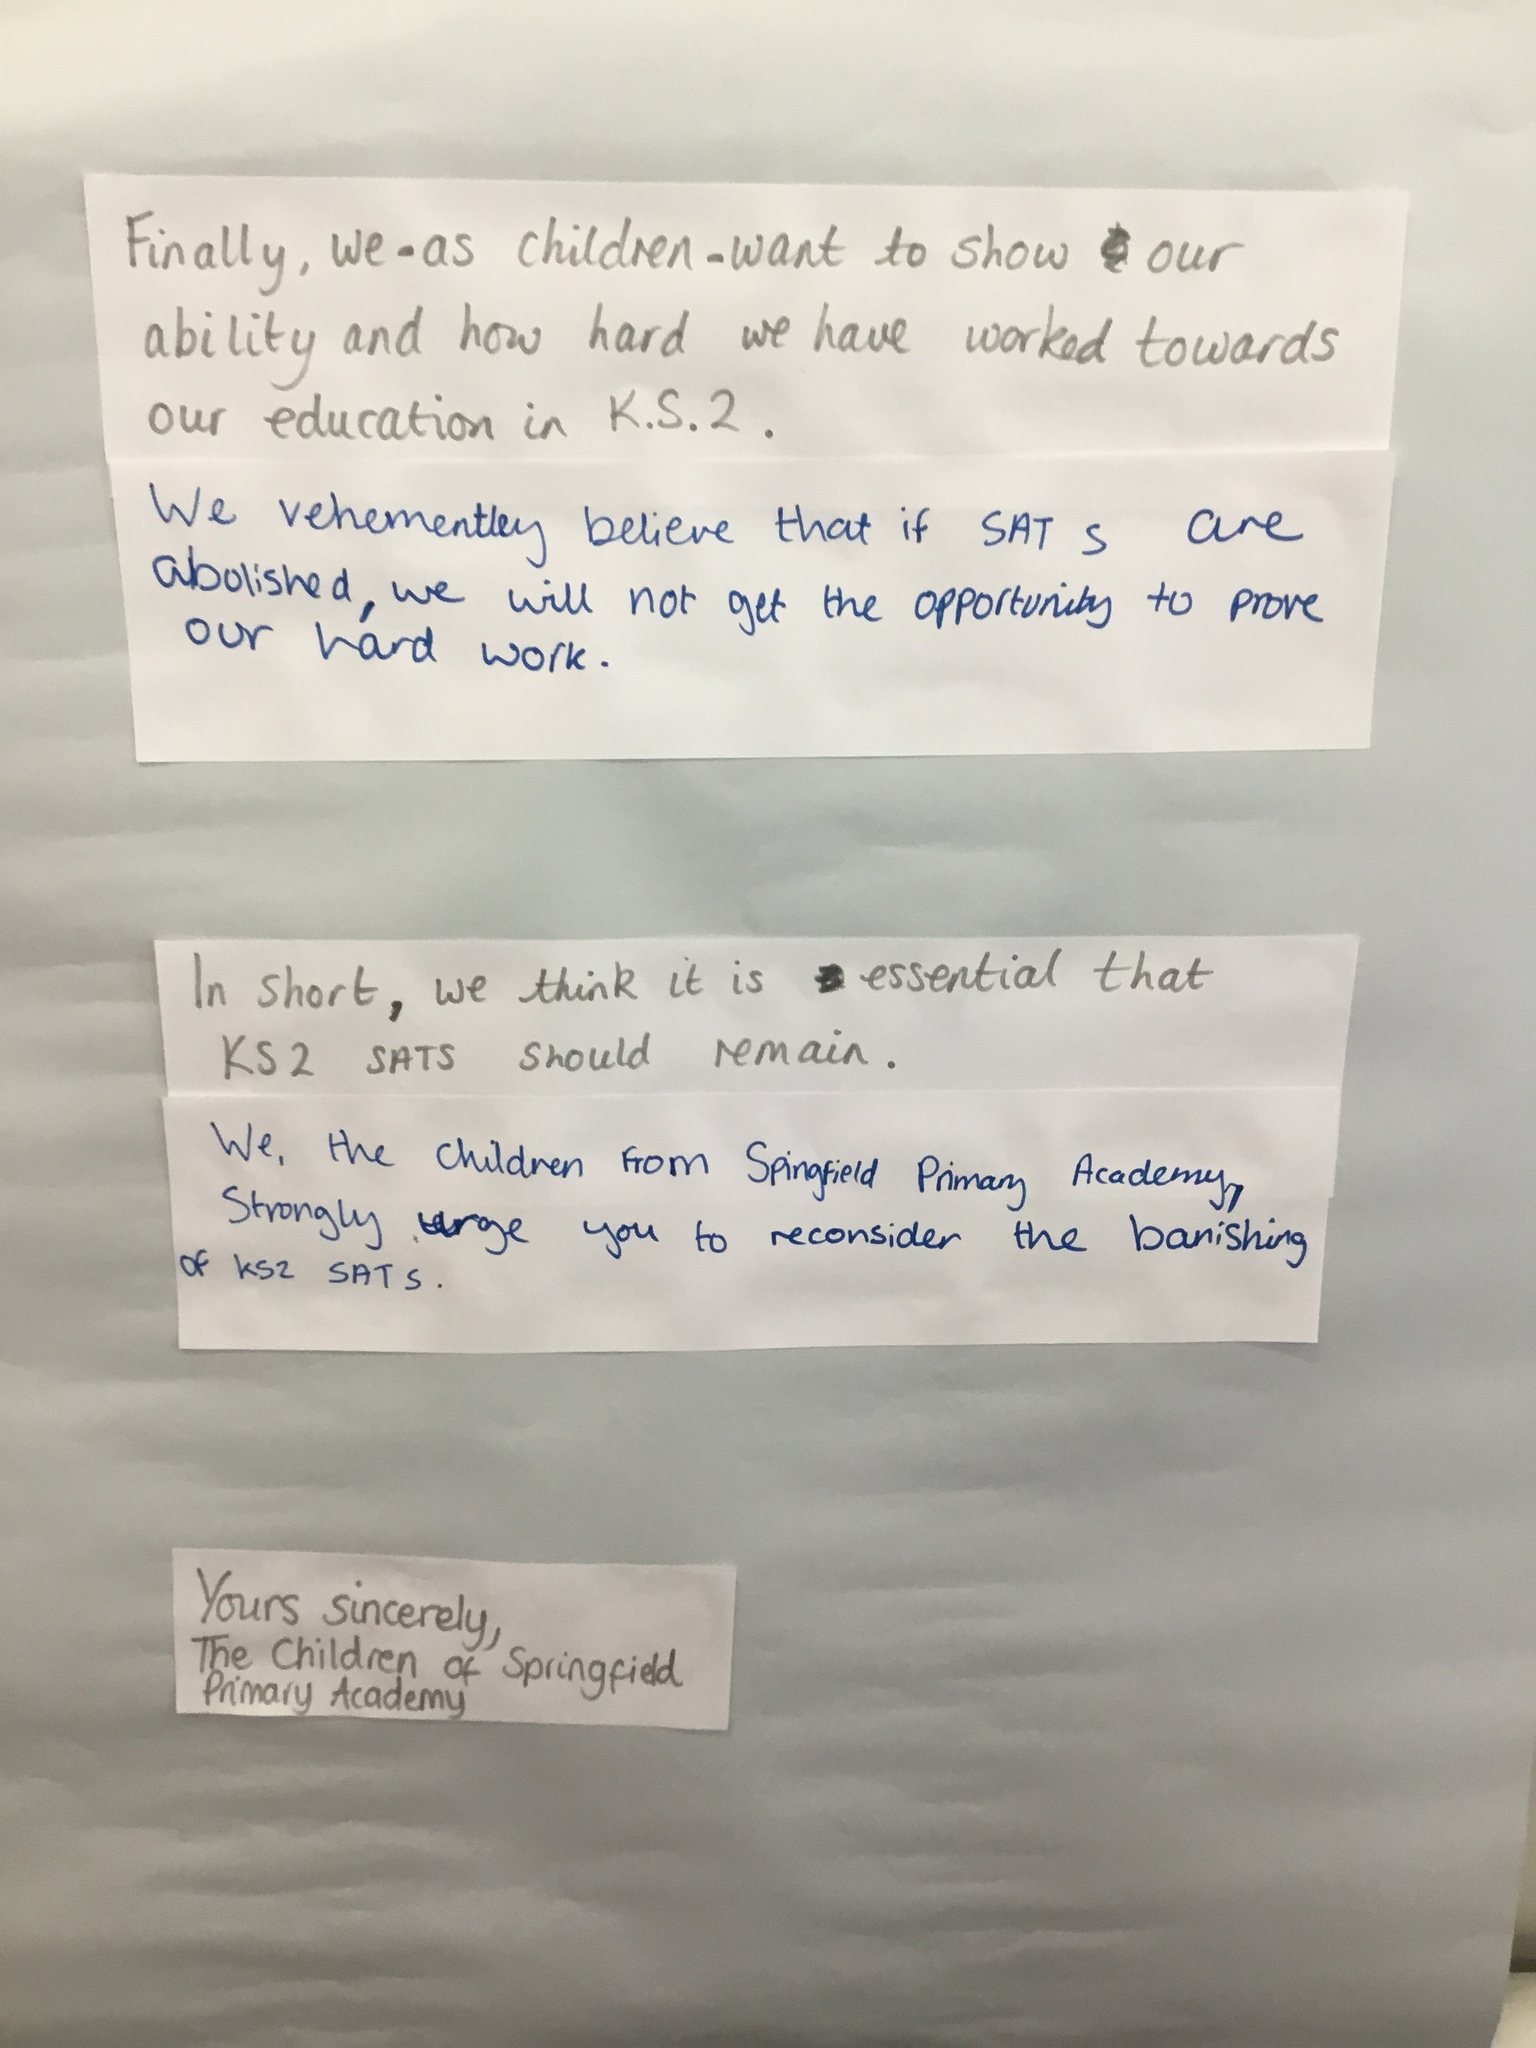 Finally, we-as children-want to show our
ability and how hard we have worked towards
our education in K.S.2.
We vehementley believe that if SATs are
abolished, we will not get the opportunity to prove
our hard work.
In short, we think it is essential that
KS2 SATS should remain.
We, the children from Spingfield Primary Academy,
Strongly urge you to reconsider the banishing
of KS2 SATs.
Yours sincerely,
The Children of Springfield
Primary Academy